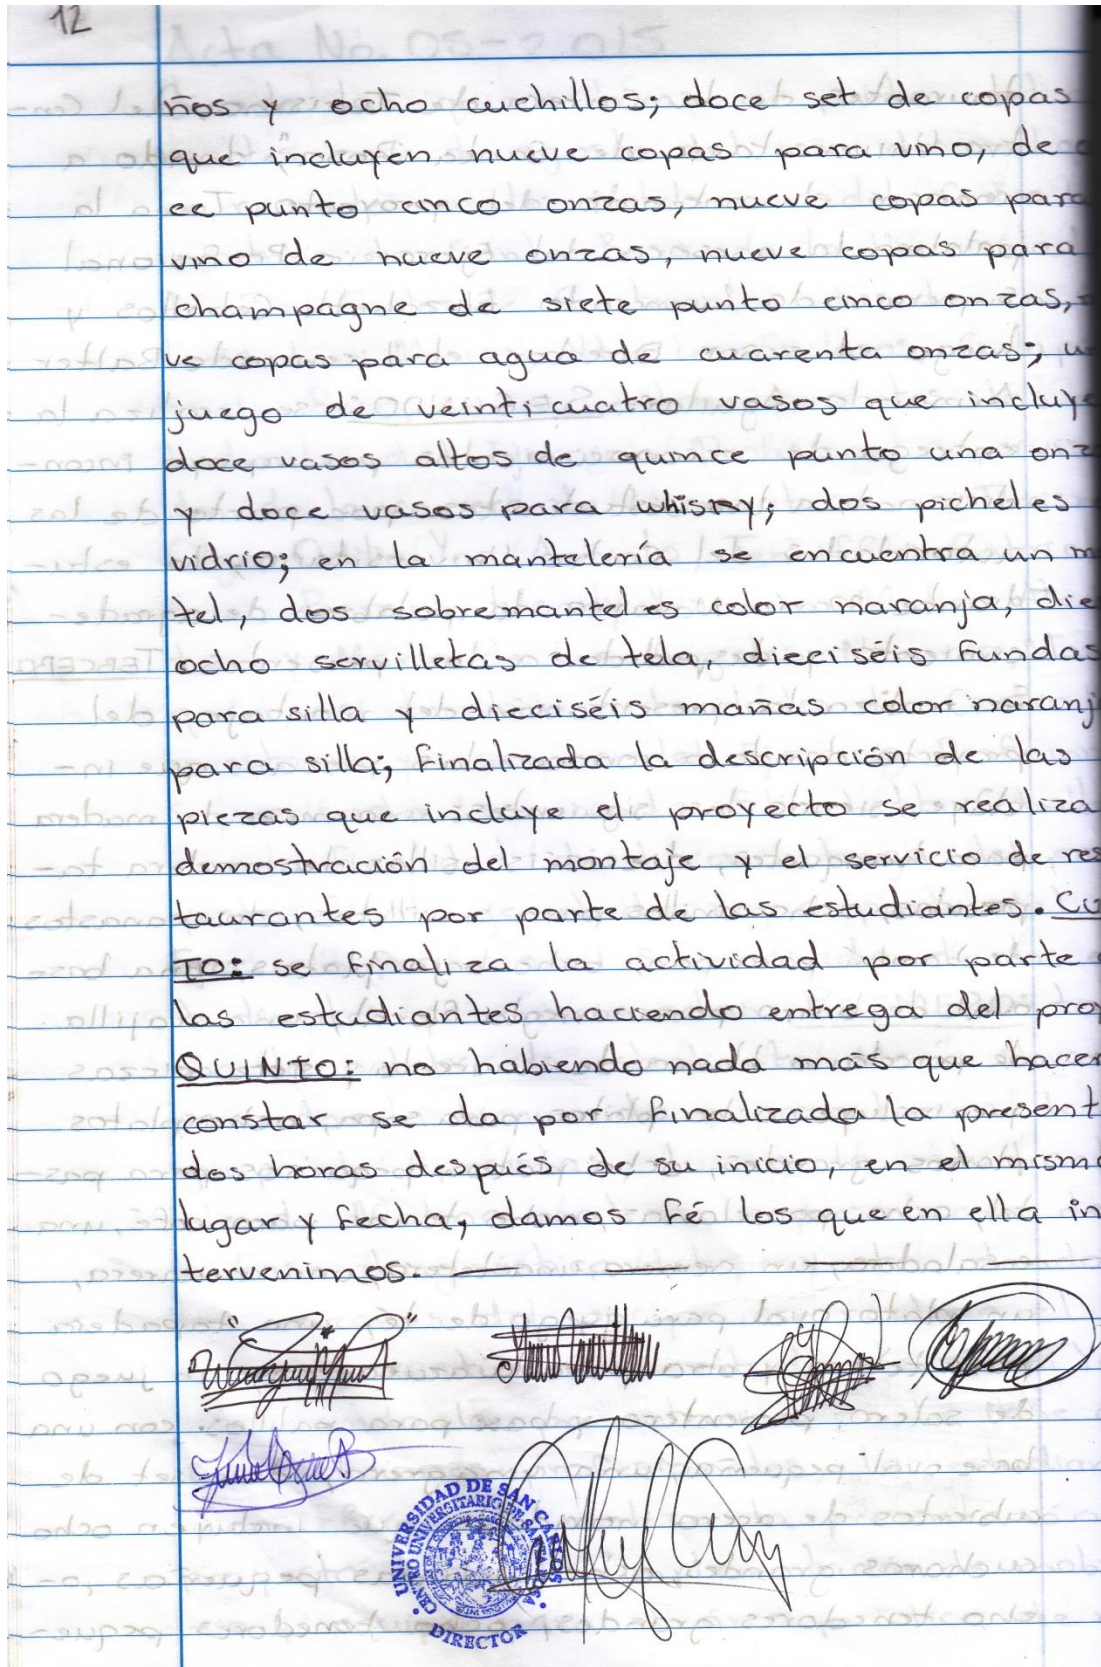 12
ños y ocho cuchillos; doce set de copas
que incluyen nueve copas para vino, de
ce punto cinco onzas, nueve copas para
vino de nueve onzas, nueve copas para
champagne de siete punto cinco onzas,
ve copas para agua de cuarenta onzas; u
juego de veinticuatro vasos que incluye
doce vasos altos de quince punto una onz
y doce vasos para whisky; dos picheles
vidrio; en la mantelería se encuentra un m
tel, dos sobremanteles color naranja, die
ocho servilletas de tela, dieciséis fundas
para silla y dieciséis mañas color naranj
para silla; finalizada la descripción de las
piezas que incluye el proyecto se realiza
demostración del montaje y el servicio de res
taurantes por parte de las estudiantes. CU
TO: se finaliza la actividad por parte
las estudiantes haciendo entrega del pro
QUINTO: no habiendo nada más que hacer
constar se da por finalizada la present
dos horas después de su inicio, en el mismo
lugar y fecha, damos fé los que en ella in
tervenimos.
UNIVERSIDAD DE SAN CARLOS
CENTRO UNIVERSITARIO DE SANTA ROSA
DIRECTOR